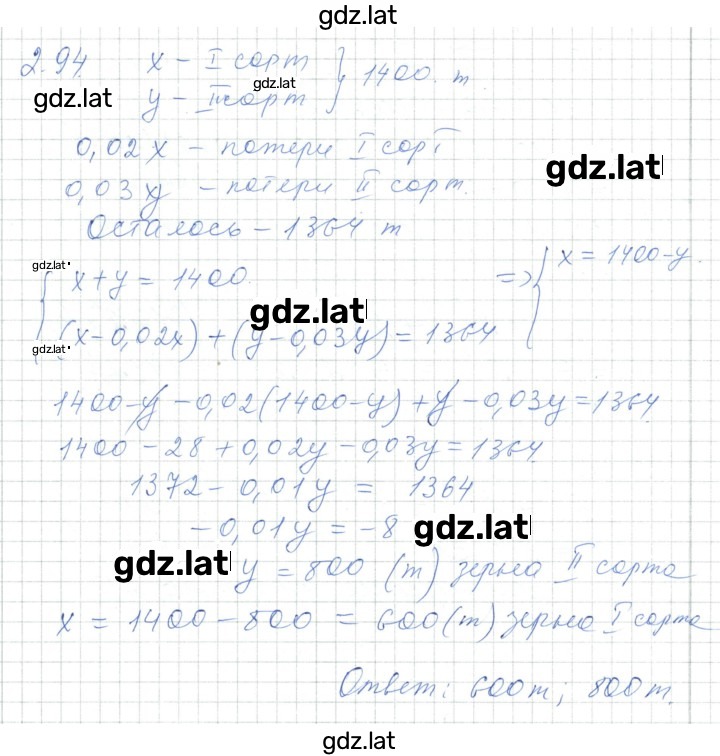 gdz.lat
2.94. x - I сорт } 1400. т.
gdz.lat
gdz.lat
y - II сорт
0,02x - потери I сорт
gdz.lat
0,03y - потери II сорт.
Осталось - 1364 т
gdz.lat
{ x+y = 1400. => { x = 1400-y.
gdz.lat
(x-0,02x) + (y-0,03y) = 1364
gdz.lat
1400-y - 0,02(1400-y) + y - 0,03y = 1364
1400 - 28 + 0,02y - 0,03y = 1364
1372 - 0,01y = 1364
-0,01y = -8
gdz.lat
gdz.lat
y = 800 (т) зерна II сорта
x = 1400 - 800 = 600(т) зерна I сорта
Ответ: 600т; 800т.
gdz.lat